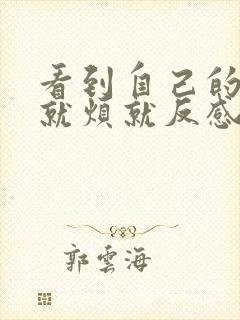 看到自己的
就烦就反感
郭雲海